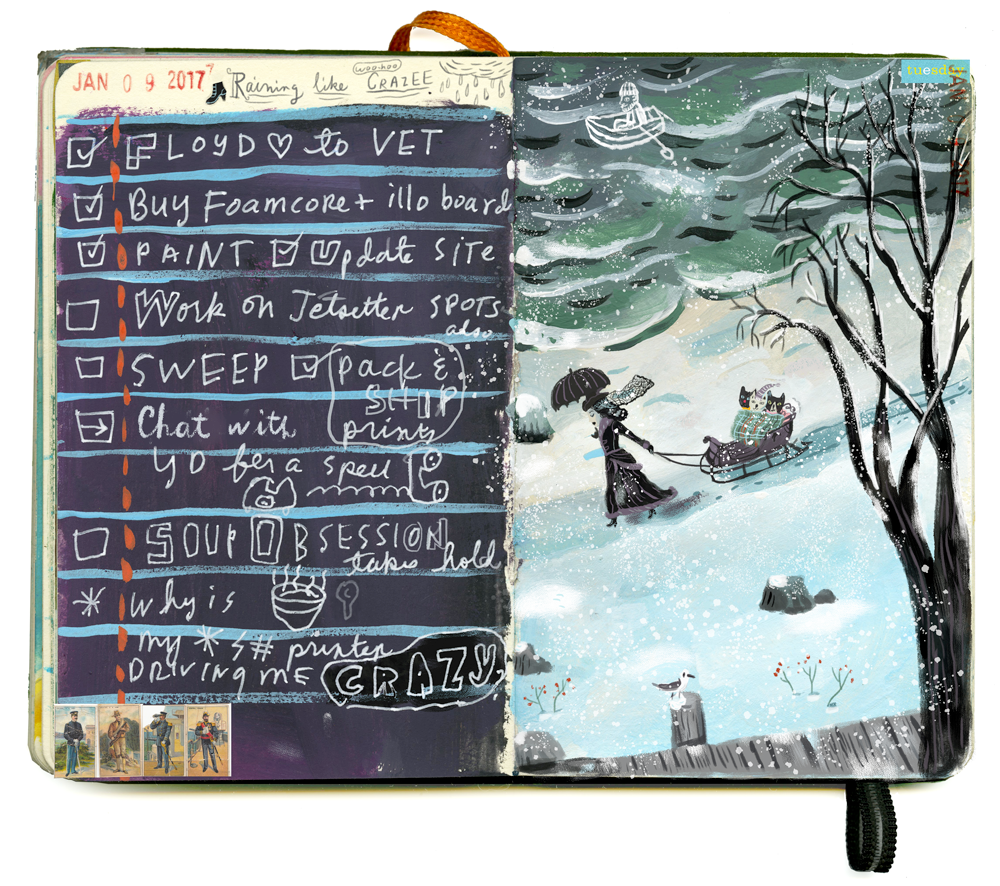 JAN 09 2017 7 Raining like woo-hoo CRAZEE
tuesday
FLOYD ♡ to VET
BUY Foamcore + illo board
PAINT Update SITE
Work on Jetsetter SPOTS
also
SWEEP pack &
SHIP
prints
Chat with
YD for a spell
SOUP OBSESSION
takes hold
Why is
my *$# printer
DRIVING ME CRAZY
?